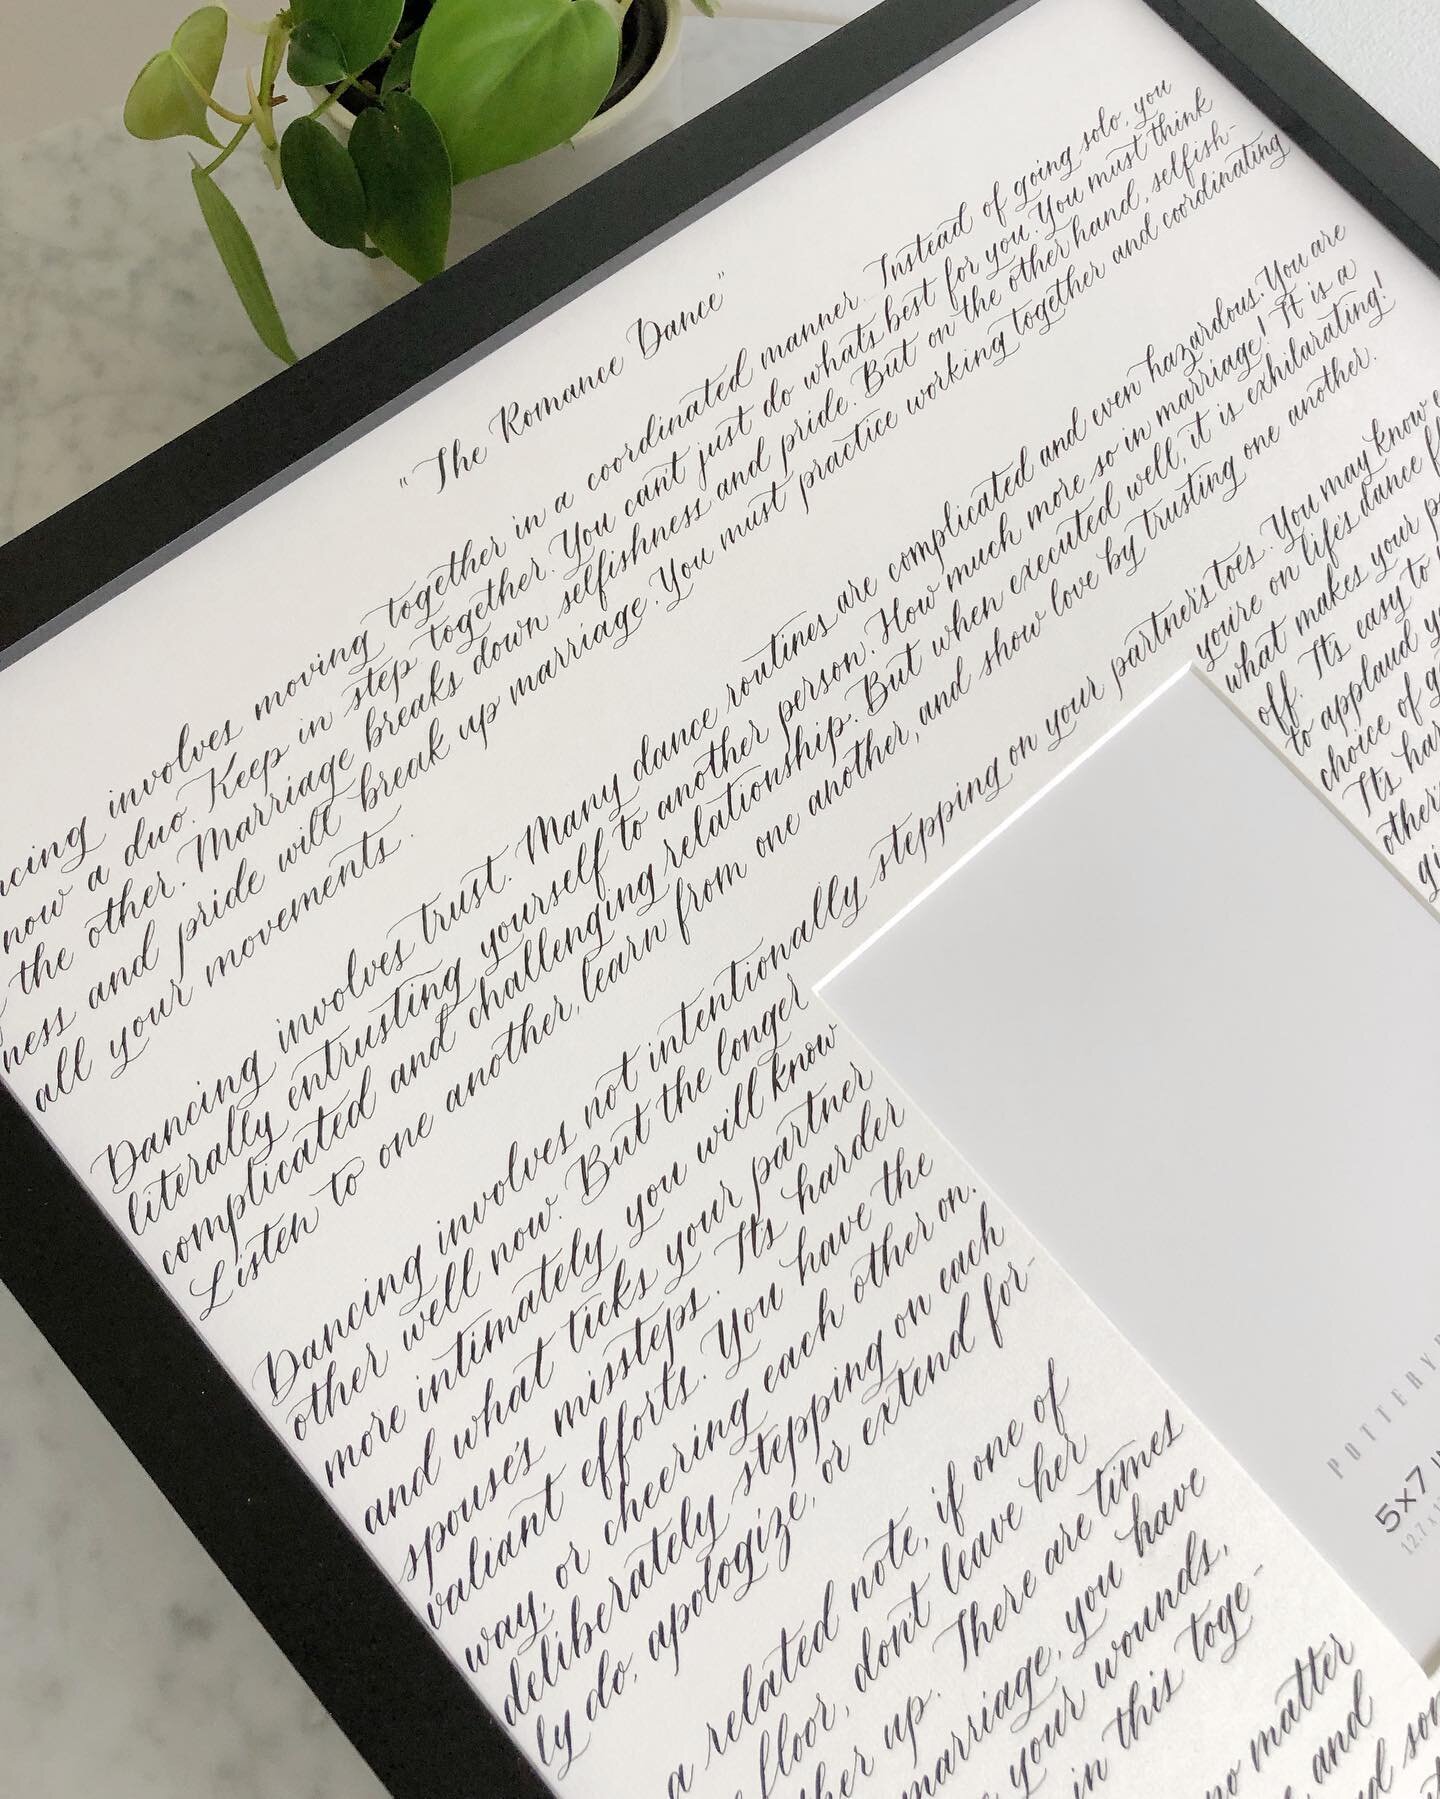 "The Romance Dance"
involves moving together in a coordinated manner. Instead of going solo, you
now a duo. Keep in step together. You can't just do whats best for you. You must think
the other. Marriage breaks down selfishness and pride. But on the other hand, selfish-
ness and pride will break up marriage. You must practice working together and coordinating
all your movements.
Dancing involves trust. Many dance routines are complicated and even hazardous. You are
literally entrusting yourself to another person. How much more so in marriage! It is a
complicated and challenging relationship. But when executed well, it is exhilarating!
Listen to one another, learn from one another, and show love by trusting one another.
Dancing involves not intentionally stepping on your partner's toes. You may know
other well now. But the longer you're on life's dance
more intimately you will know what makes your
and what ticks your partner off. It's easy to
spouse's missteps. It's harder to applaud
valiant efforts. You have the choice of
way, or cheering each other on. It's
deliberately stepping on each
ly do, apologize, or extend for-
a related note, if one of
floor, don't leave her
up. There are times
marriage, you have
your wounds,
in this toge-
no matter
and
POTTERY
5x7